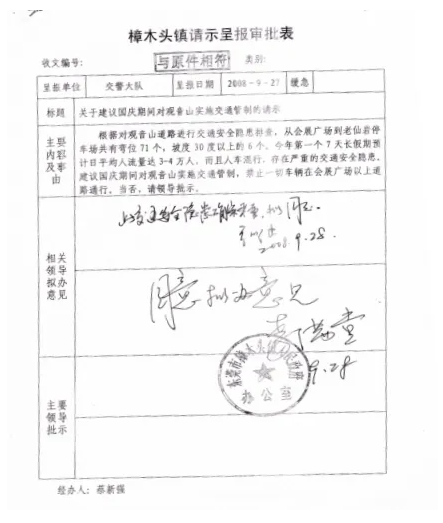 樟木头镇请示呈报审批表
收文编号： 与原件相符 类别:
呈报单位 交警大队 呈报日期 2008-9-27 缓急
标题 关于建议国庆期间对观音山实施交通管制的请示
主要内容及事由
根据对观音山道路进行交通安全隐患排查，从会展广场到老仙岩停
车场共有弯位71个，坡度30度以上的6个。今年第一个7天长假期预
计日平均人流量达3-4万人，而且人车混行，存在严重的交通安全隐患。
建议国庆期间对观音山实施交通管制，禁止一切车辆在会展广场以上道
路通行。当否，请领导批示。
相关领导拟办意见
同意。
2008.9.28.
同意拟办意见
9.28
东莞市樟木头镇人民政府
办公室
主要领导批示
经办人：蔡新强